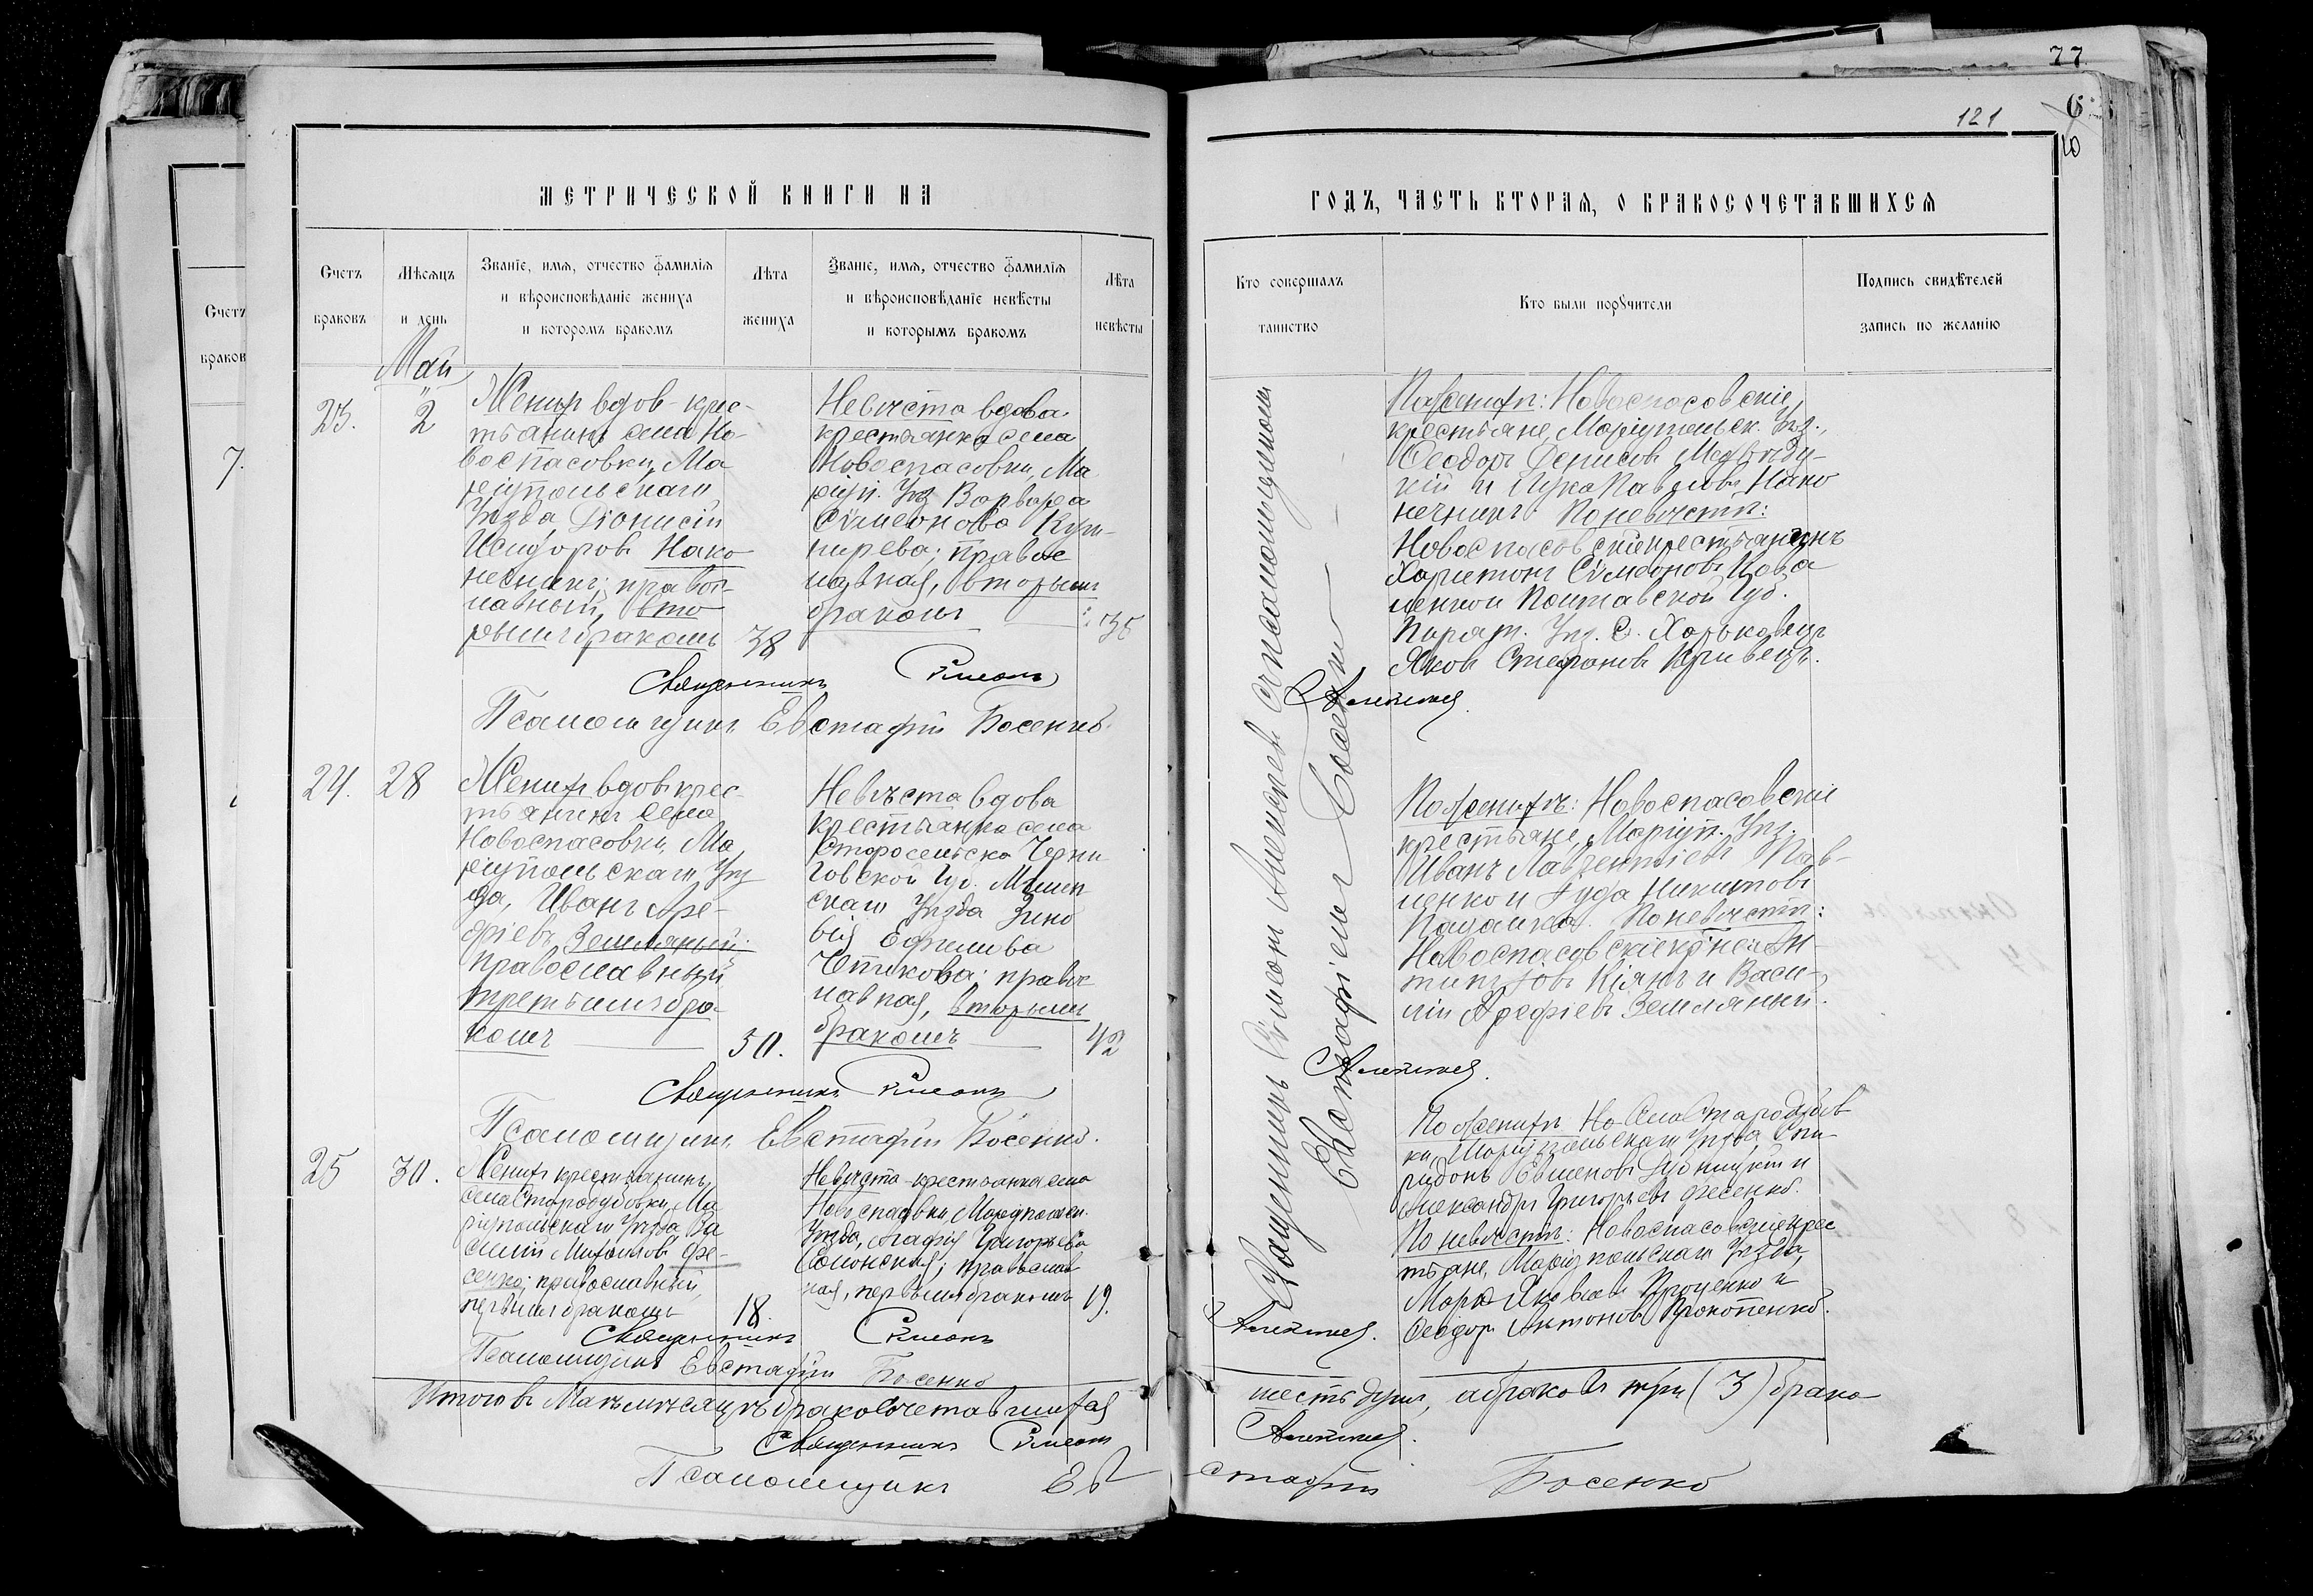 77
121
6
10
МЕТРИЧЕСКОЙ КНИГИ НА
Счетъ
браковъ
Мѣсяцъ
и день
Званіе, имя, отчество фамилія
и вѣроисповѣданіе жениха
и которомъ бракомъ
Лѣта
жениха
Званіе, имя, отчество фамилія
и вѣроисповѣданіе невѣсты
и которымъ бракомъ
Лѣта
невѣсты
Счетъ
браков
7.
Май
23.
2
Женихъ вдовъ крес-
тьянинъ села Но-
воспасовки, Ма
ріупольскаго
Уѣзда, Діонисій
Исидоровъ Нако
нечникъ; правос-
лавный, вто
рымъ бракомъ
38
Невѣста вдова
крестьянка села
Новоспасовки, Ма
ріуп. Уѣз. Варвара
Сѵмеонова
пирева; правос
лавная, вторымъ
бракомъ
35
Священникъ Сѵмеонъ
Псаломщикъ Евстафій Босенко.
24.
28
Женихъ вдовъ крес-
тьянинъ села
Новоспасовки, Ма
ріупольскаго Уѣз
да, Иванъ Аре-
фіевъ Земляный;
православный
третьимъ бра-
комъ
50.
Невѣста вдова
крестьянка села
Старосельска Черни
говской Губ. Мглин
скаго Уѣзда Зино
вія Ефимова
правос
лавная, вторымъ
бракомъ
42
Священникъ Сѵмеонъ
Псаломщикъ Евстафій Босенко.
25
30.
Женихъ крестьянинъ
села Стародубовки, Ма
ріупольскаго Уѣзда, Ва
силій Михаиловъ Фе-
сенко; православный,
первымъ бракомъ
18.
Невѣста крестьянка села
Новоспасовки, Маріупольск.
Уѣзда, Агафія Григорьева
православ
ная, первымъ бракомъ
19.
Священникъ Сѵмеонъ
Псаломщикъ Евстафій Босенко
Итого въ Маѣ мѣсяцѣ бракосочетавшихся
Священникъ Сѵмеонъ
Псаломщикъ Ев
ГОДЪ, ЧАСТЬ ВТОРАЯ, О БРАКОСОЧЕТАВШИХСЯ
Кто совершалъ
таинство
Кто были порꙋчители
Подпись свидѣтелей
запись по желанію
Священникъ Сѵмеонъ Алексѣевъ съ псаломщикомъ
Евстафіемъ Босенко
По женихѣ: Новоспасовскіе
крестьяне, Маріупольск. Уѣз.,
Ѳеодоръ Денисовъ Медвѣдц-
кій и Лука Павловъ Нако
нечникъ. По невѣстѣ:
Новоспасовскій крестьянинъ
Харитонъ Сѵмеоновъ Кова
ленко и Полтавской Губ.
Пирят. Уѣз. С. Харьковецъ
Яковъ Стефановъ Кривецъ.
Алексѣевъ.
По женихѣ: Новоспасовскіе
крестьяне, Маріуп. Уѣз.
Иванъ Лаврентіевъ Пав-
ленко и Іуда Никитовъ
По невѣстѣ:
Новоспасовскіе кр-не: Ан-
Кіянъ и Васи-
лій Арефіевъ Земляный.
Алексѣевъ.
По женихѣ: Кр-не села Стародубов
ки, Маріупольскаго Уѣзда, Спи-
ридонъ Евменовъ Дубницкій и
Александръ Григорьевъ Фесенко.
По невѣстѣ: Новоспасовскіе крес
тьяне, Маріупольскаго Уѣзда,
Марко Яковлевъ Проценко и
Ѳеодоръ Антоновъ Прокопенко.
Алексѣевъ.
шесть душъ, а браковъ три (3) брака
Алексѣевъ.
стафій Босенко